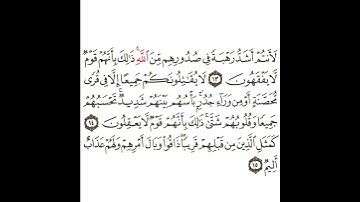 لَأَنتُمْ أَشَدُّ رَهْبَةً فِى صُدُورِهِم مِّنَ ٱللَّهِ ۚ ذَٰلِكَ بِأَنَّهُمْ قَوْمٌ
لَّا يَفْقَهُونَ ١٣ لَا يُقَٰتِلُونَكُمْ جَمِيعًا إِلَّا فِى قُرًى
مُّحَصَّنَةٍ أَوْ مِن وَرَآءِ جُدُرٍۭ ۚ بَأْسُهُم بَيْنَهُمْ شَدِيدٌ ۚ تَحْسَبُهُمْ
جَمِيعًا وَقُلُوبُهُمْ شَتَّىٰ ۚ ذَٰلِكَ بِأَنَّهُمْ قَوْمٌ لَّا يَعْقِلُونَ ١٤
كَمَثَلِ ٱلَّذِينَ مِن قَبْلِهِمْ قَرِيبًا ۖ ذَاقُوا۟ وَبَالَ أَمْرِهِمْ وَلَهُمْ عَذَابٌ
أَلِيمٌ ١٥